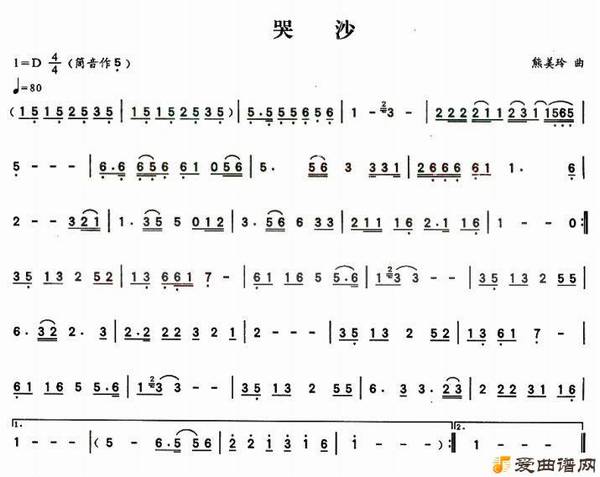 哭 沙
1=D 4/4 (筒音作5)
♩=80
熊美玲 曲
( 1 5 1 5 2 5 3 5 | 1 5 1 5 2 5 3 5 ) | 5 · 5 5 5 6 5 6 | 1 - 2 3 - | 2 2 2 2 1 1 2 3 1 1 5 6 5 |
5 - - - | 6 · 6 6 5 6 6 1 0 5 6 | 5 · 5 6 3 3 3 1 | 2 6 6 6 6 1 1 · 6 |
2 - - 3 2 1 | 1 · 3 5 5 0 1 2 | 3 · 5 6 6 3 3 | 2 1 1 1 6 2 · 1 1 6 | 1 - - 0 :‖
3 5 1 3 2 5 2 | 1 3 6 6 1 7 - | 6 1 1 6 5 5 · 6 | 1 2 3 3 - | 3 5 1 3 2 5 5 |
6 · 3 2 2 · 3 | 2 · 2 2 2 3 2 1 | 2 - - - | 3 5 1 3 2 5 2 | 1 3 6 1 7 - |
6 1 1 6 5 5 · 6 | 1 2 3 3 - | 3 5 1 3 2 5 5 | 6 · 3 3 · 2 3 | 2 2 3 1 1 6 |
1. 2.
1 - - - | ( 5 - 6 · 5 5 6 | 2 2 1 3 1 2 | 1 - - - ) :‖ 1 - - - ‖
爱曲谱网